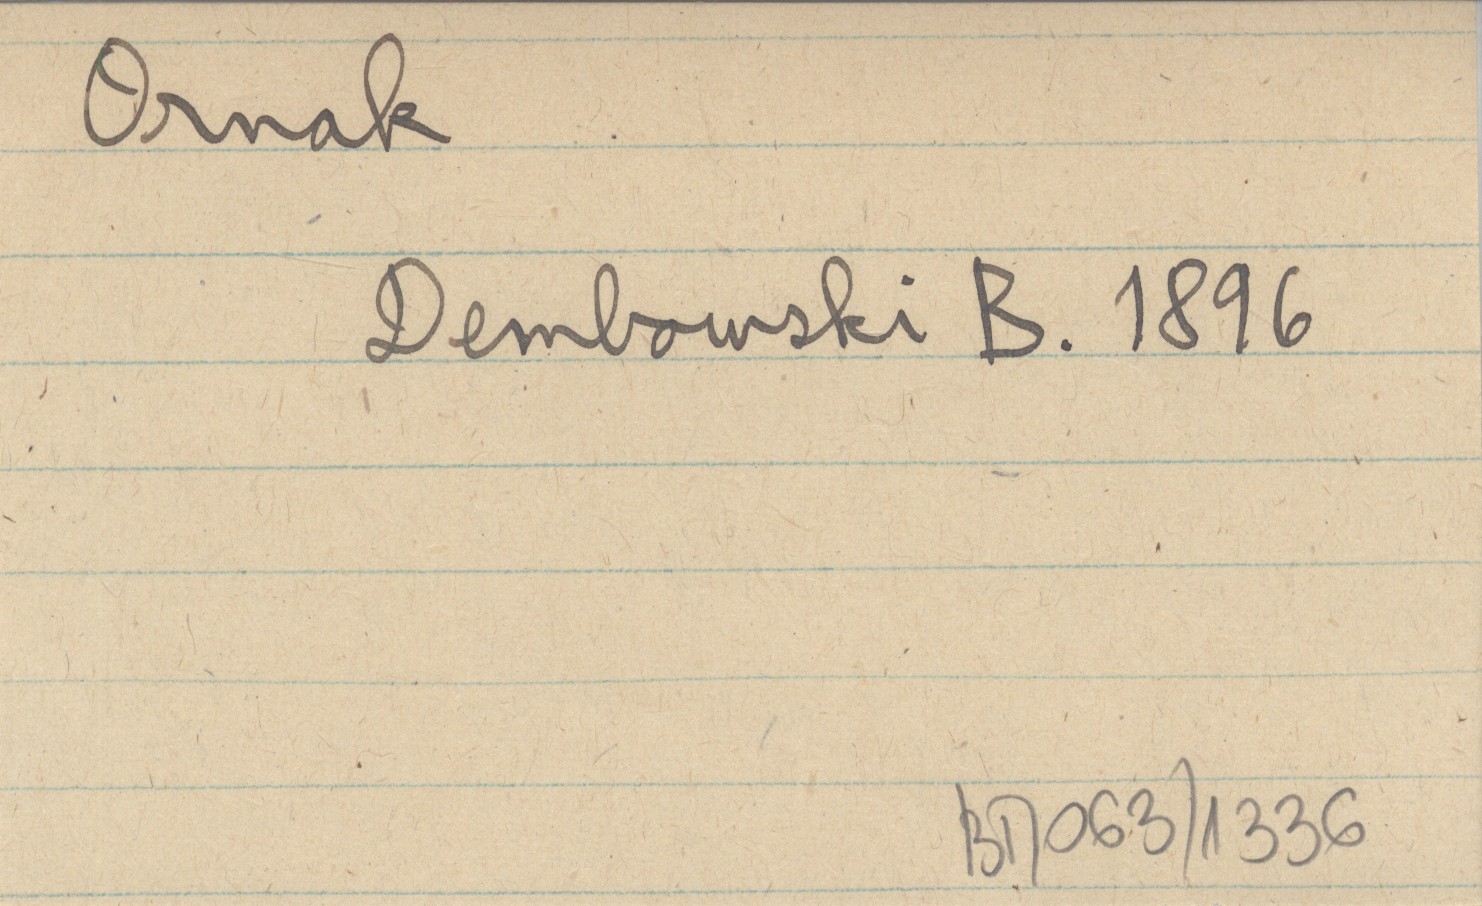 Ornak
Dembowski B. 1896
BT/063/1336